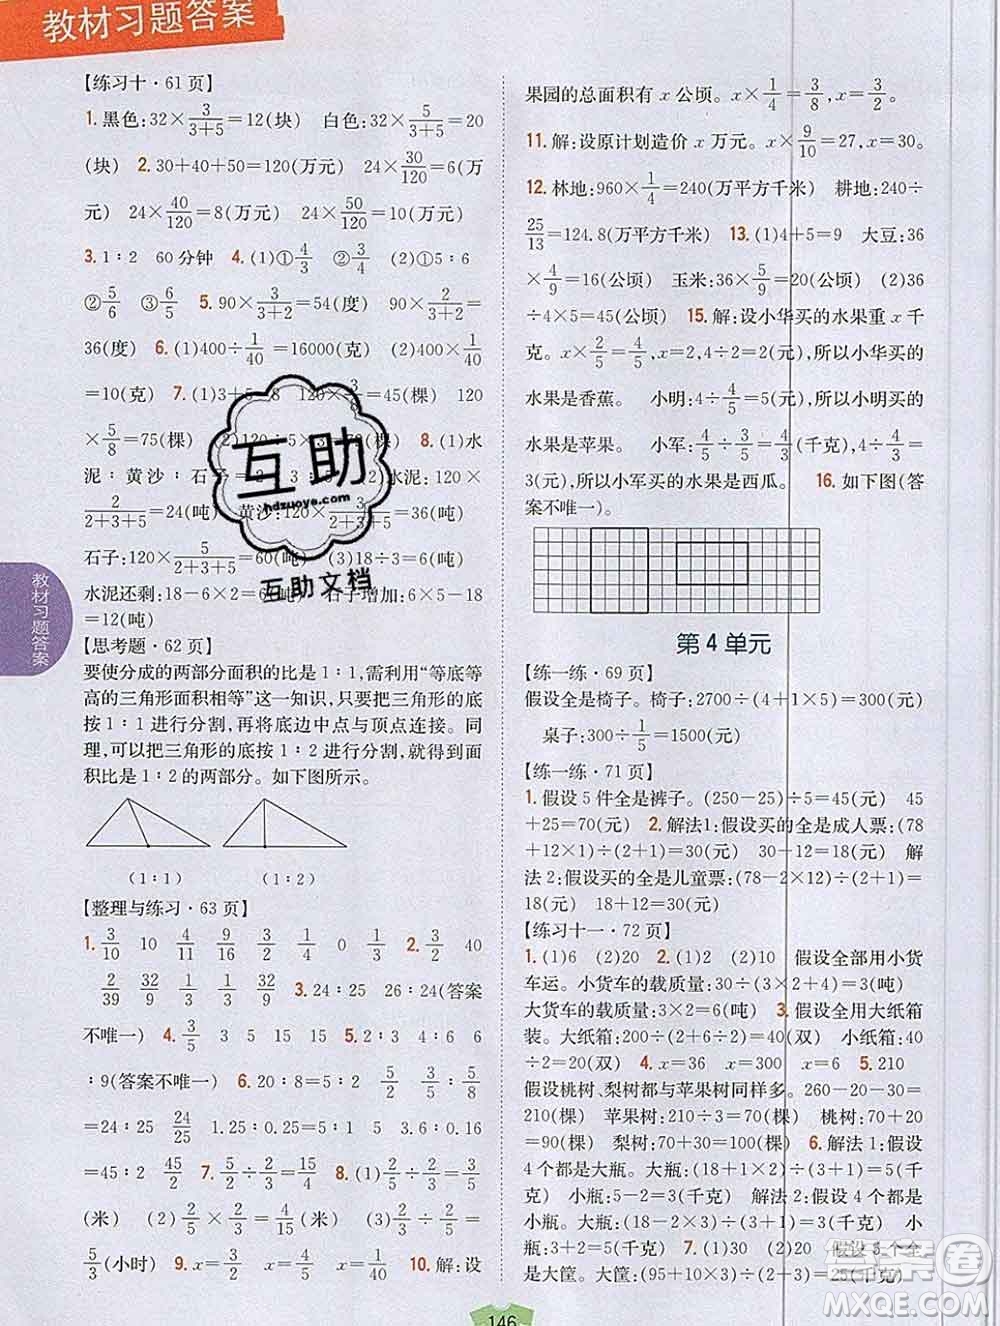 教材习题答案
【练习十·61页】
1.黑色:32×3/(3+5)=12(块) 白色:32×5/(3+5)=20
(块) 2.30+40+50=120(万元) 24×30/120=6(万
元) 24×40/120=8(万元) 24×50/120=10(万元)
3.1∶2 60分钟 4.(1)①4/3 ②4/5 (2)①5∶6
②5/6 ③6/5 5.90×3/(3+2)=54(度) 90×2/(3+2)=
36(度) 6.(1)400÷1/40=16000(克) (2)400×1/40
=10(克) 7.(1)3+5=8 120×3/8=45(棵) 120
×5/8=75(棵) (2)120÷5×3 8.(1)水
泥∶黄沙∶石子 水泥:120×
2/(2+3+5)=24(吨) 黄沙:120×3/(2+3+5)=36(吨)
石子:120×5/(2+3+5)=60(吨) (3)18÷3=6(吨)
水泥还剩:18-6×2=6(吨) 石子增加:6×5-18
=12(吨)
【思考题·62页】
要使分成的两部分面积的比是1∶1,需利用“等底等
高的三角形面积相等”这一知识,只要把三角形的底
按1∶1进行分割,再将底边中点与顶点连接。同
理,可以把三角形的底按1∶2进行分割,就得到面
积比是1∶2的两部分。如下图所示。
(1∶1) (1∶2)
【整理与练习·63页】
1.3/10 10 4/11 9/16 3/2 1/4 0 1/3 2.3/2 40
2/39 32/9 9/25 3.24∶25 26∶24(答案
不唯一) 4.3/5 3 5 15 5.2∶3 4∶6 6
∶9(答案不唯一) 6.20∶8=5/2 5/2 3/5∶5/8
=24∶25 24/25 1.25∶0.25=5∶1 5 3.6∶0.16
=45∶2 45/2 7.6/5 9/25 1/3 8.(1)2/5÷2/3=3/5
(米) (2)2/5×2/3=4/15(米) (3)2/3÷2/5=
5/3(小时) 9.x=1/3 x=6 x=1/6 10.解:设
果园的总面积有x公顷。x×1/4=3/8,x=3/2。
11.解:设原计划造价x万元。x×9/10=27,x=30。
12.林地:960×1/4=240(万平方千米) 耕地:240÷
25/13=124.8(万平方千米) 13.(1)4+5=9 大豆:36
×4/9=16(公顷) 玉米:36×5/9=20(公顷) (2)36
÷4×5=45(公顷) 15.解:设小华买的水果重x千
克。x×2/5=4/5,x=2,4÷2=2(元),所以小华买的
水果是香蕉。 小明:4÷4/5=5(元),所以小明买的
水果是苹果。 小军:4/5÷3/5=4/3(千克),4÷4/3=
3(元),所以小军买的水果是西瓜。 16.如下图(答
案不唯一)。
第4单元
【练一练·69页】
假设全是椅子。椅子:2700÷(4+1×5)=300(元)
桌子:300÷1/5=1500(元)
【练一练·71页】
1.假设5件全是裤子。(250-25)÷5=45(元) 45
+25=70(元) 2.解法1:假设买的全是成人票:(78
+12×1)÷(2+1)=30(元) 30-12=18(元) 解
法2:假设买的全是儿童票:(78-12×2)÷(2+1)=
18(元) 18+12=30(元)
【练习十一·72页】
1.(1)6 (2)20 2.(1)2 (2)10 假设全部用小货
车运。小货车的载质量:30÷(3×2+4)=3(吨)
大货车的载质量:3×2=6(吨) 3.假设全用大纸箱
装。大纸箱:200÷(2+6÷2)=40(双) 小纸箱:40
÷2=20(双) 4.x=36 x=300 x=6 5.210
假设桃树、梨树都与苹果树同样多。260-20-30=
210(棵) 苹果树:210÷3=70(棵) 桃树:70+20
=90(棵) 梨树:70+30=100(棵) 6.解法1:假设
4个都是大瓶。大瓶:(18+1×2)÷(3+1)=5(千
克) 小瓶:5-2=3(千克) 解法2:假设4个都是
小瓶。大瓶:(18-1×2)÷(3+1)=3(千克) 小
瓶:3+2=5(千克) 7.(1)30 (2)10 假设5个全
是大筐。大筐:(95+10×3)÷(2+3)=25(千克)
教材习题答案
146
互助
hdzuoye.com
互助文档
答案圈
MXQE.COM